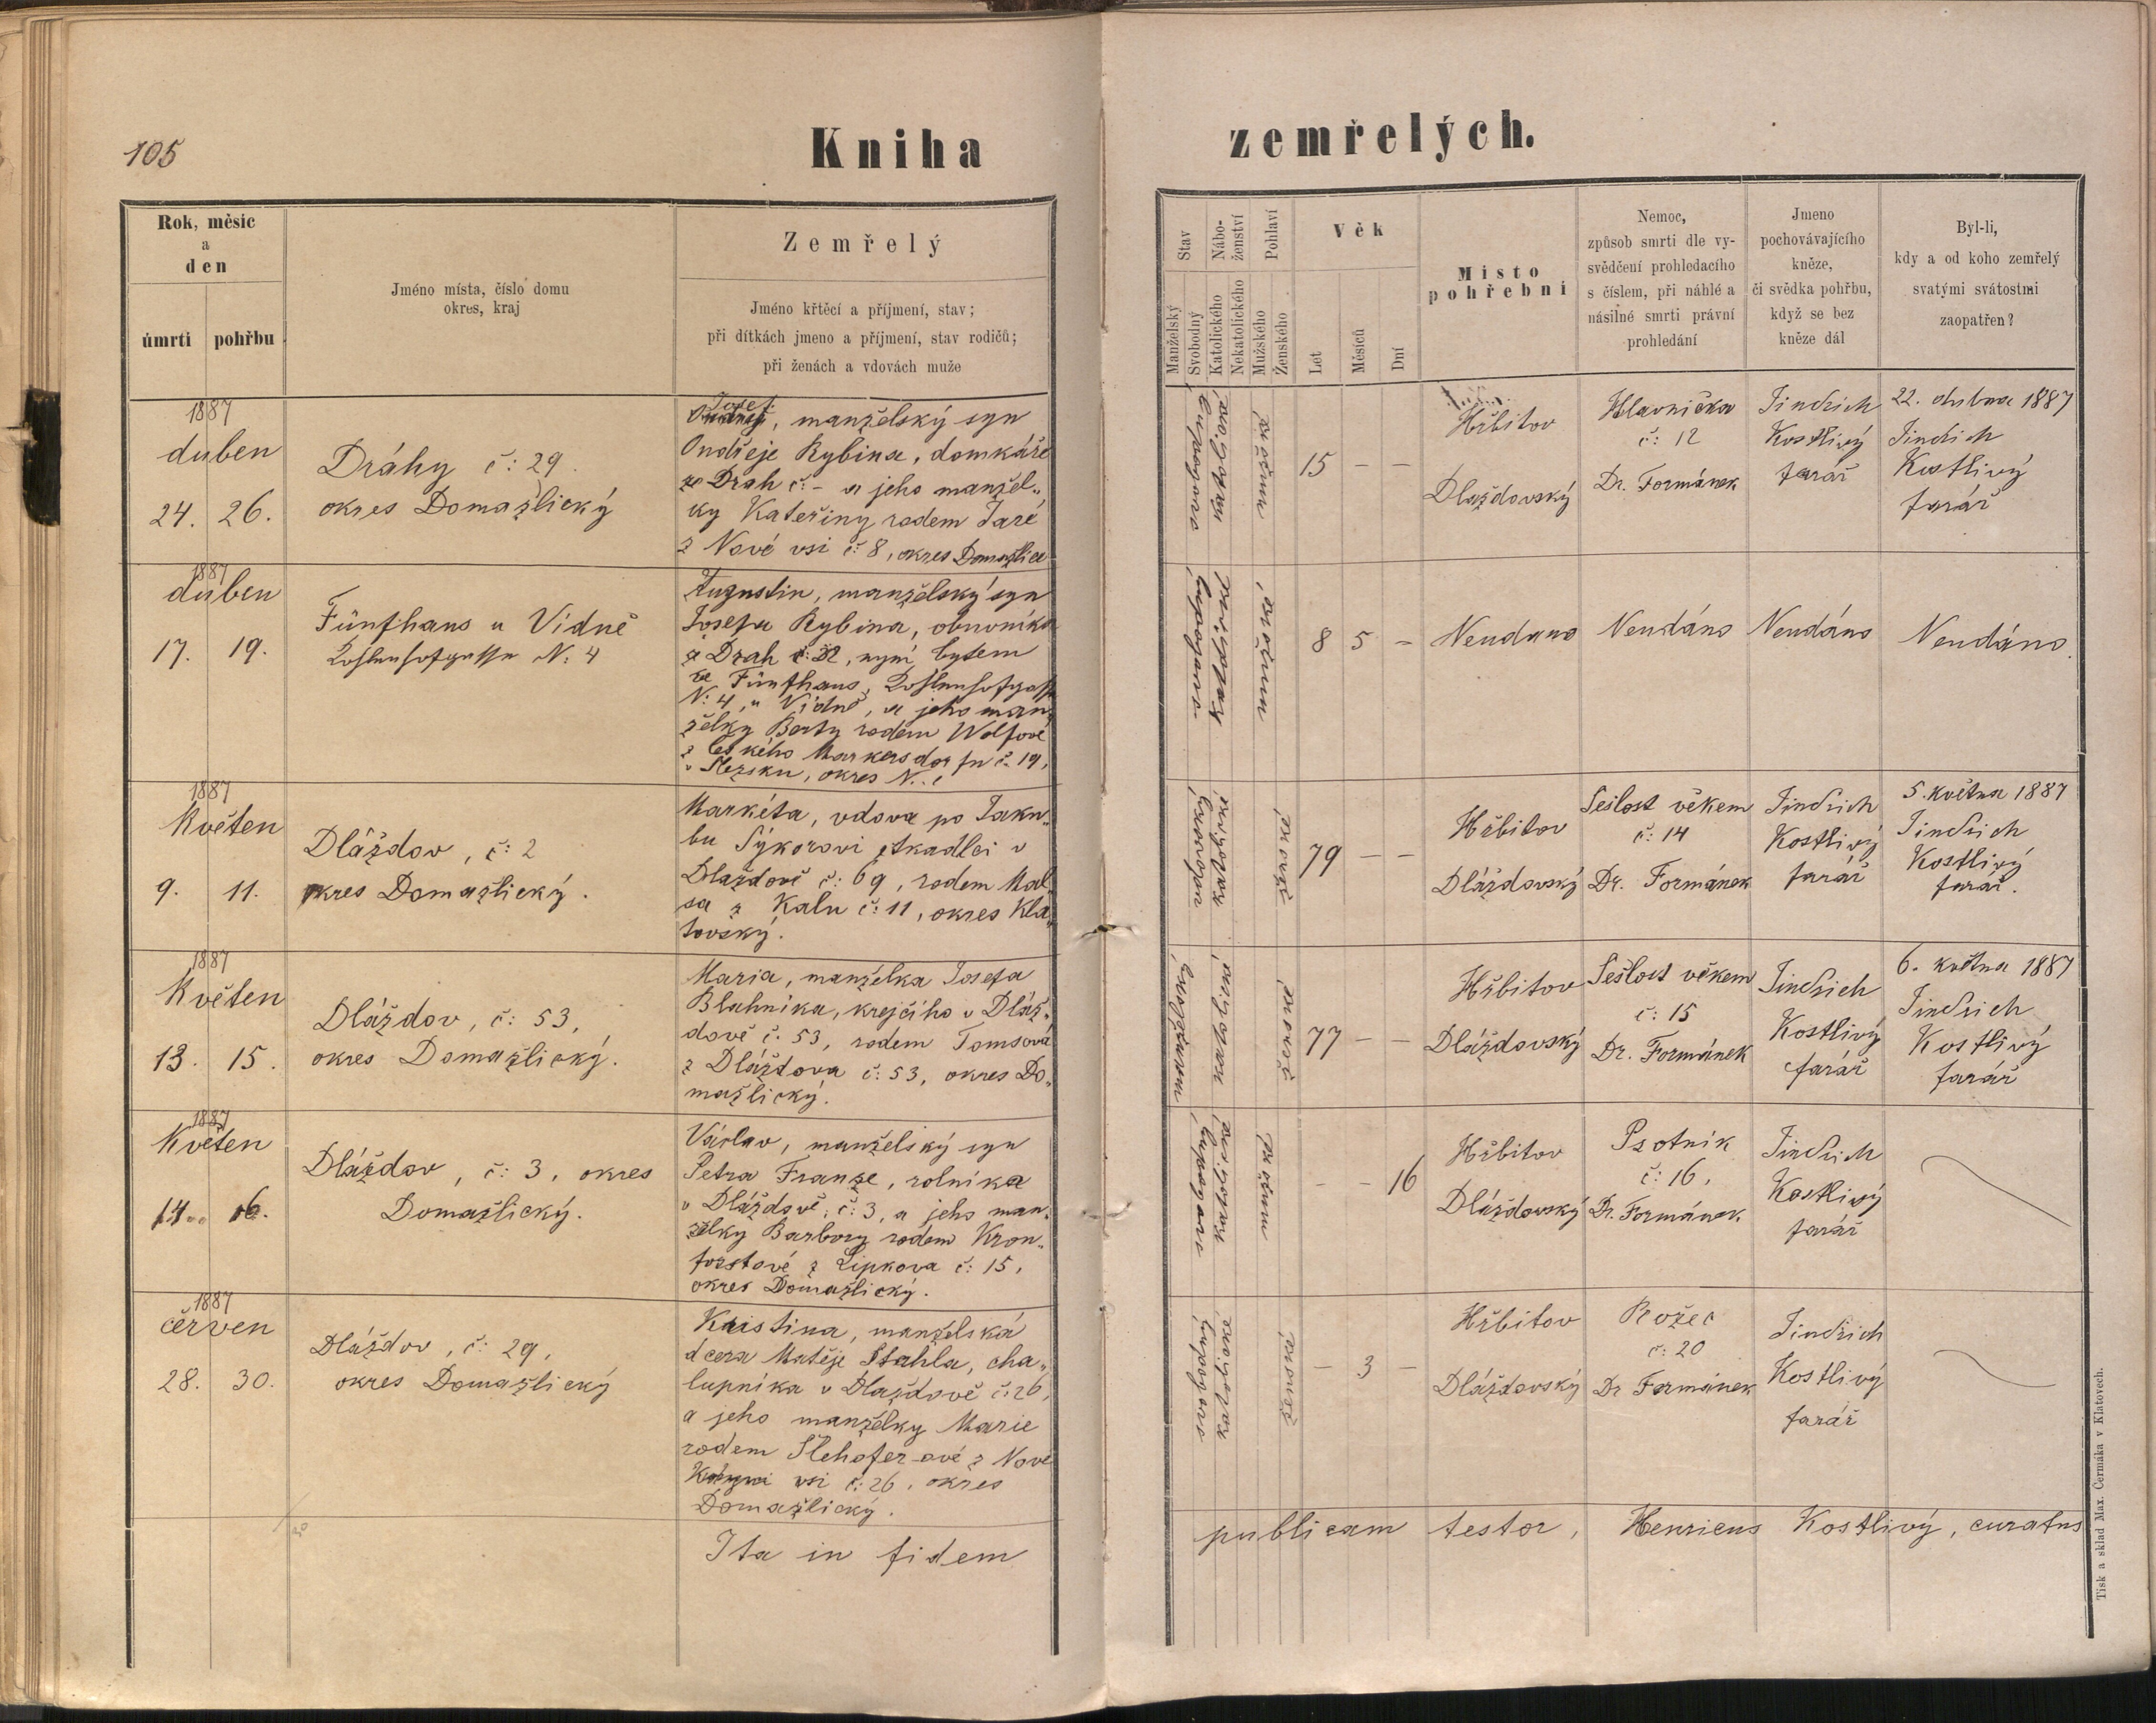 105
Kniha
zemřelých.
Rok, měsíc
a
den
úmrtí
pohřbu
Jméno místa, číslo domu
okres, kraj
Zemřelý
Jméno křtěcí a příjmení, stav;
při dítkách jmeno a příjmení, stav rodičů;
při ženách a vdovách muže
Stav
Manželský
Svobodný
Nábo-
ženství
Katolického
Nekatolického
Pohlaví
Mužského
Ženského
Věk
Let
Měsíců
Dní
Místo
pohřební
Nemoc,
způsob smrti dle vy-
svědčení prohledacího
s číslem, při náhlé a
násilné smrti právní
prohledání
Jmeno
pochovávajícího
kněze,
či svědka pohřbu,
když se bez
kněze dál
Byl-li,
kdy a od koho zemřelý
svatými svátostmi
zaopatřen?
1887
duben
24. 26.
Dráhy č: 29.
okres Domažlický
Josef
, manželský syn
Ondřeje Rybina, domkáře
ze Drah č: - a jeho manžel„
ky Kateřiny rodem Jaré
z Nové vsi č: 8, okres Domažlice
svobodný
katolické
mužské
15 – –
Hřbitov
Dlaždovský
Hlavnička
č: 12
Dr. Formánek
Jindřich
Kostlivý
farář
22. dubna 1887
Jindřich
Kostlivý
farář
1887
duben
17. 19.
Fünfhaus u Vídně
N: 4
Augustin, manželský syn
Josefa Rybina, obuvníka
z Drah č: 32, nyní bytem
ve Fünfhaus,
N: 4, u Vídně, a jeho man„
želky Berty rodem Wolfové
z Českého Markersdorfu č. 19,
v Slezsku, okres
svobodný
katolické
mužské
8 5 –
Neudano
Neudáno
Neudáno
Neudáno.
1887
Květen
9. 11.
Dláždov, č: 2
okres Domažlický.
Markéta, vdova po Jaku„
bu Sýkorovi, tkadlci v
Dlaždově č: 69, rodem
z Kalu č: 11, okres Kla„
tovský.
katolické
ženské
79 – –
Hřbitov
Dláždovský
Sešlost věkem
č: 14
Dr. Formánek
Jindřich
Kostlivý
farář
5. května 1887
Jindřich
Kostlivý
farář.
1887
Květen
13. 15.
Dláždov, č: 53,
okres Domažlický.
Maria, manželka Josefa
Blahníka, krejčího v Dláž„
dově č. 53, rodem Tomsová
z Dláždova č: 53, okres Do„
mažlický.
katolické
ženské
77 – –
Hřbitov
Dláždovský
Sešlost věkem
č: 15
Dr. Formánek
Jindřich
Kostlivý
farář
6. května 1887
Jindřich
Kostlivý
farář
1887
Květen
14. 16.
Dláždov, č: 3, okres
Domažlický.
Václav, manželský syn
Petra Franze, rolníka
v Dláždově, č: 3, a jeho man„
želky Barbory rodem Kron„
forstové z Lipkova č: 15,
okres Domažlický.
svobodný
katolické
mužské
– – 16
Hřbitov
Dláždovský
Psotník
č: 16,
Dr. Formánek
Jindřich
Kostlivý
farář
1887
červen
28. 30.
Dláždov, č: 29,
okres Domažlický
Kristina, manželská
dcera Matěje Stahla, cha„
lupníka v Dlaždově č: 26,
a jeho manželky Marie
rodem Šlehoferové z Nové
vsi č: 26, okres
Domažlický.
svobodné
katolické
ženské
– 3 –
Hřbitov
Dláždovský
Božec
č: 20
Dr Formánek
Jindřich
Kostlivý
farář
Ita in fidem publicam testor, Henricus Kostlivý, curatus
Tisk a sklad Max. Čermáka v Klatovech.